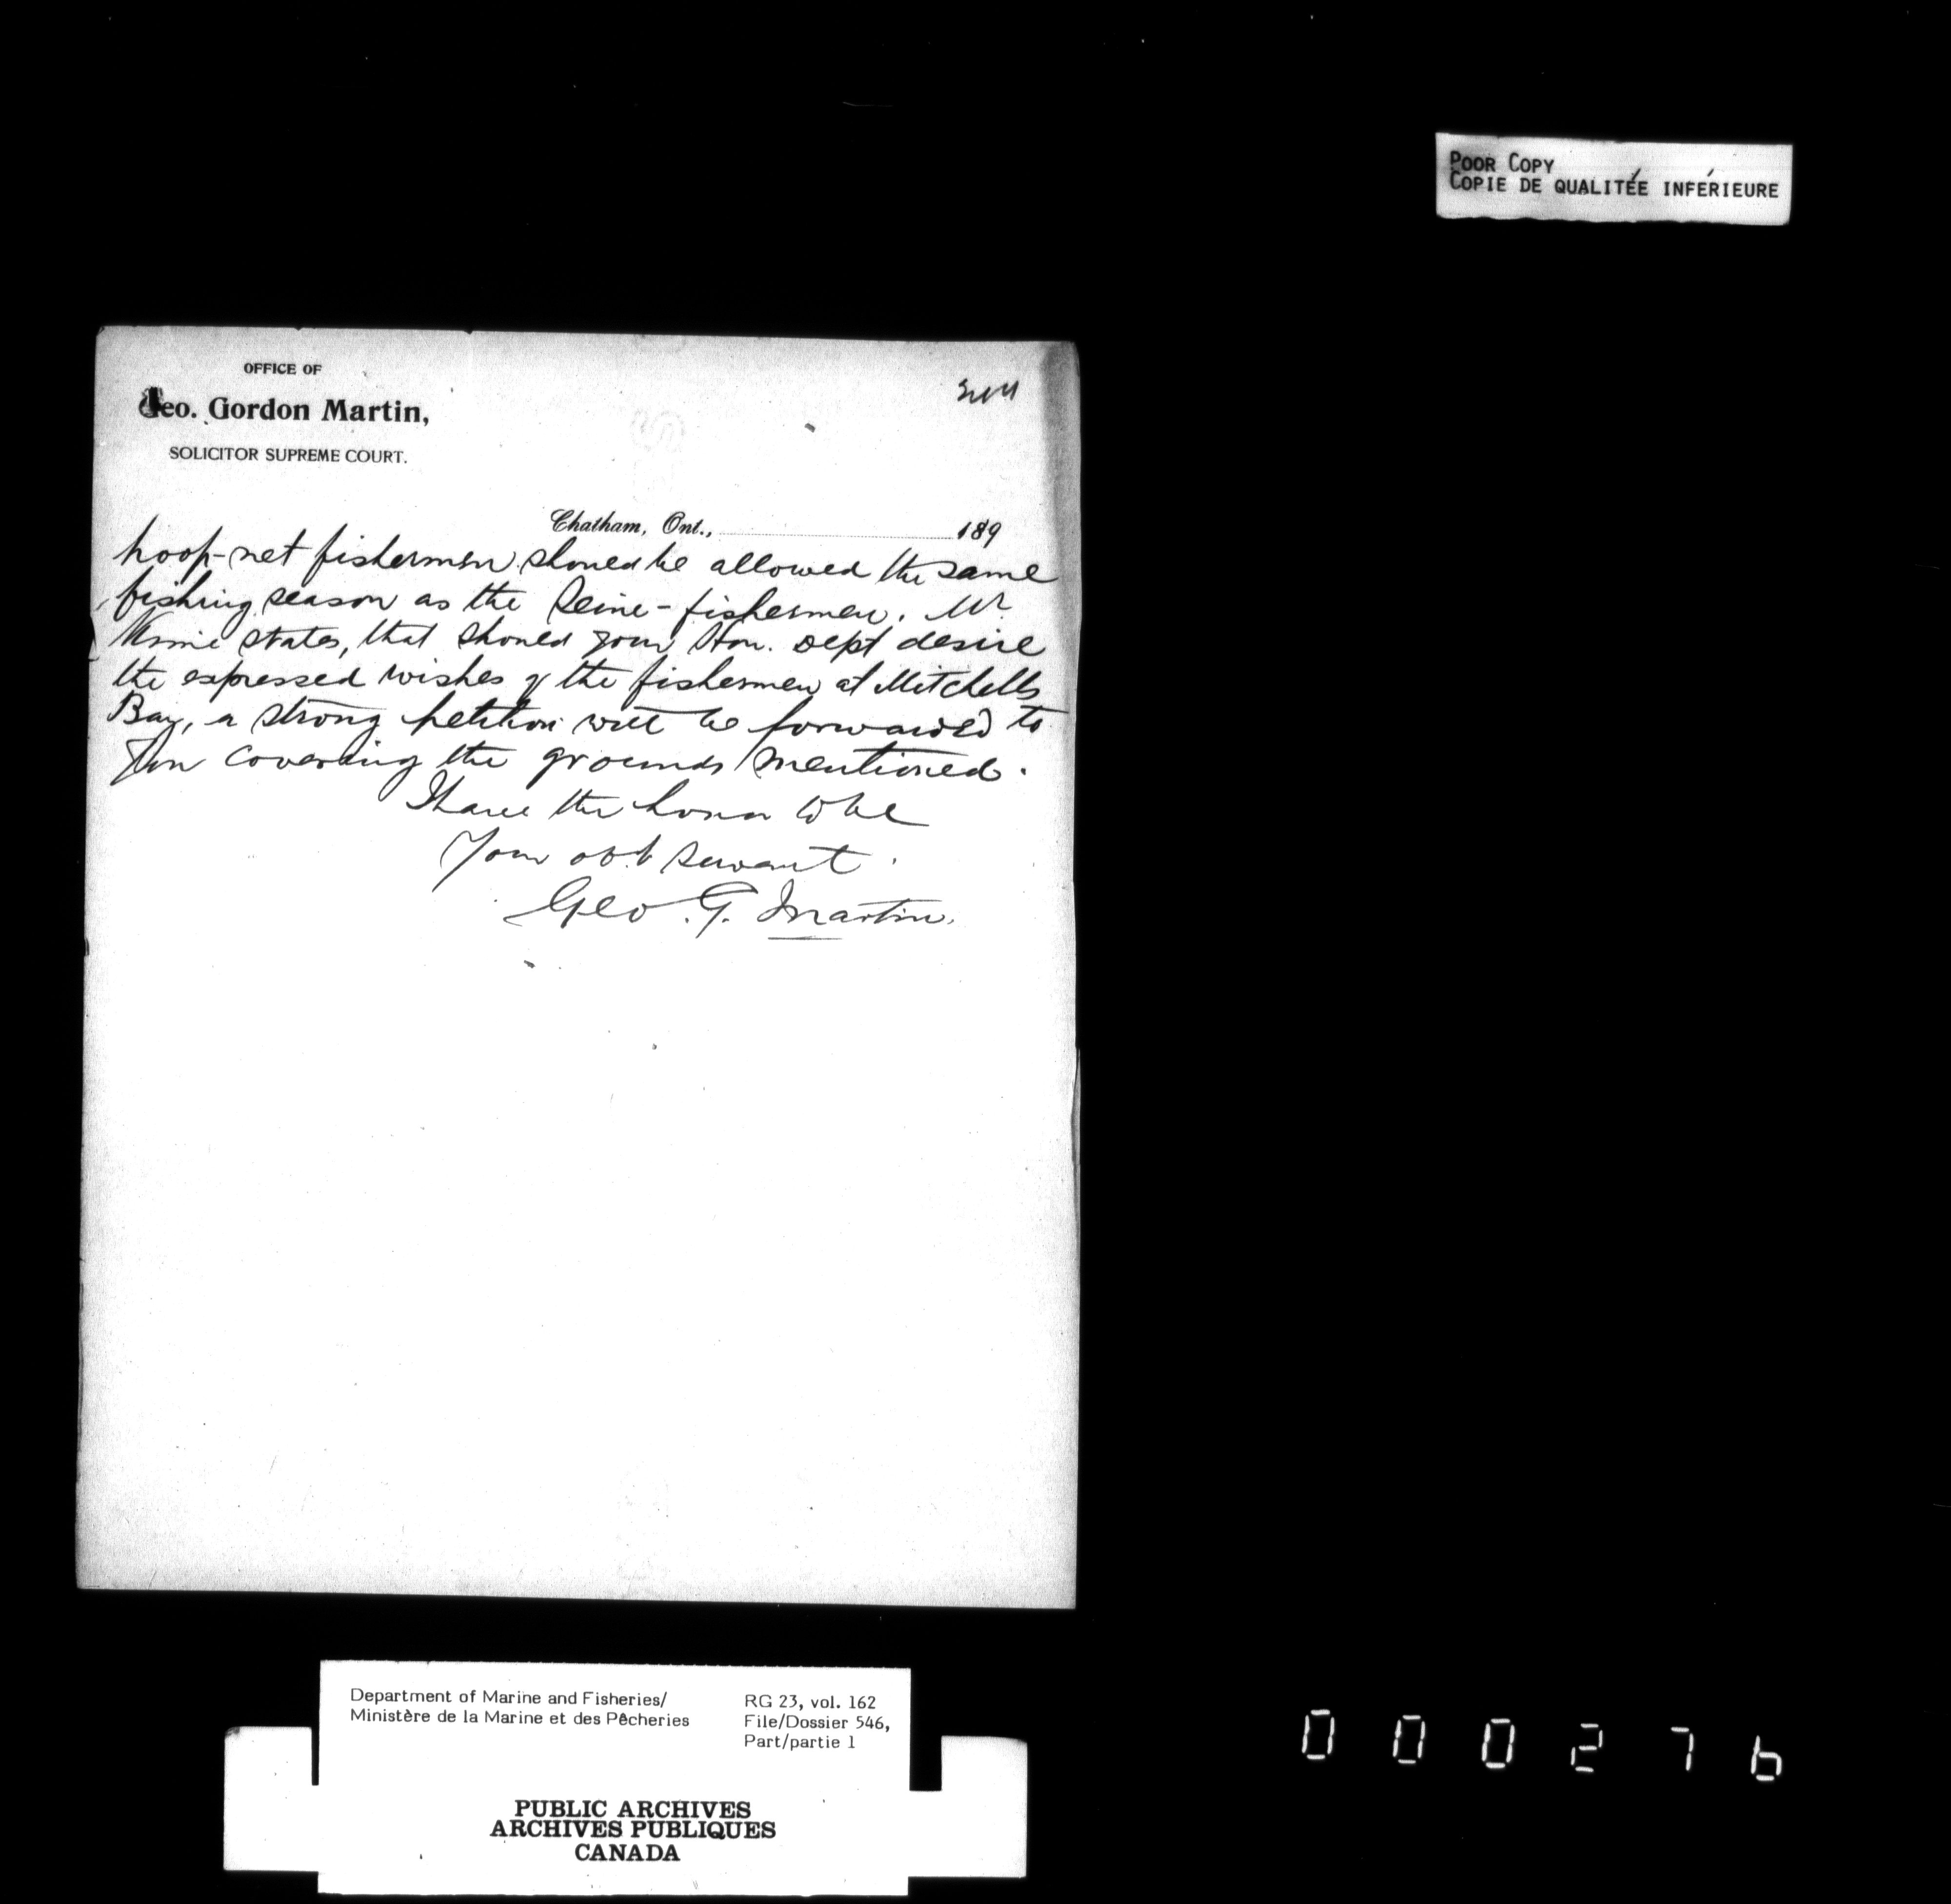 POOR COPY
COPIE DE QUALITÉE INFÉRIEURE
OFFICE OF
Geo. Gordon Martin,
SOLICITOR SUPREME COURT.
Chatham, Ont., 189
hoop-net fishermen should be allowed the same
fishing season as the Seine-fishermen. Mr
states, that should your Hon. Dept desire
the expressed wishes of the fishermen at Mitchells
Bay, a strong petition will be forwarded to
You covering the grounds mentioned.
I have the honor to be
Your obt servant.
Geo. G. Martin.
Department of Marine and Fisheries/
Ministère de la Marine et des Pêcheries
RG 23, vol. 162
File/Dossier 546,
Part/partie 1
PUBLIC ARCHIVES
ARCHIVES PUBLIQUES
CANADA
000276